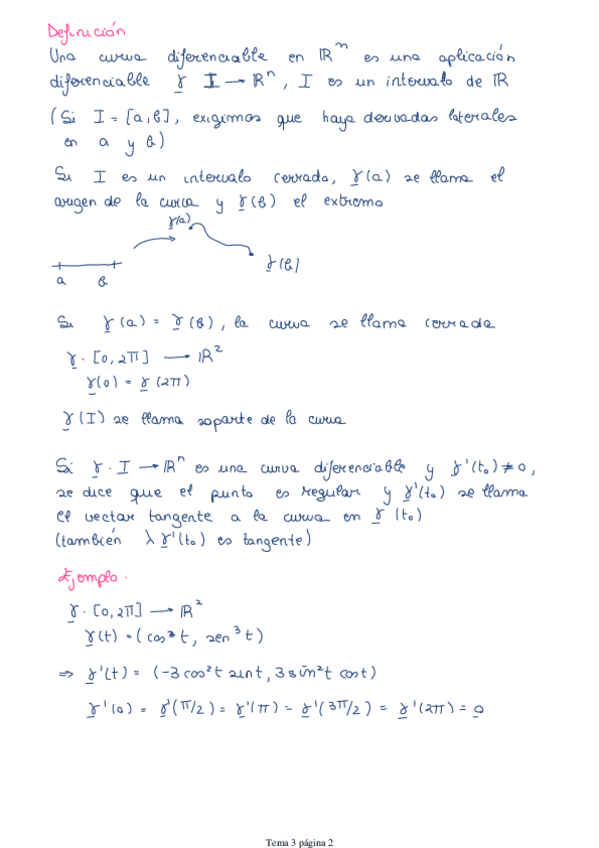 Definición
Una curva diferenciable en ℝⁿ es una aplicación
diferenciable γ I → ℝⁿ, I es un intervalo de ℝ
(Si I = [a,b], exigimos que haya derivadas laterales
en a y b)
Si I es un intervalo cerrado, γ(a) se llama el
origen de la curva y γ(b) el extremo
γ(a)
γ(b)
a b
Si γ(a) = γ(b), la curva se llama cerrada
γ· [0,2π] → ℝ²
γ(0) = γ(2π)
γ(I) se llama soporte de la curva
Si γ· I → ℝⁿ es una curva diferenciable y γ'(t₀) ≠ 0,
se dice que el punto es regular y γ'(t₀) se llama
el vector tangente a la curva en γ(t₀)
(también λ γ'(t₀) es tangente)
Ejemplo·
γ· [0,2π] → ℝ²
γ(t) = (cos³t, sen³t)
⇒ γ'(t) = (-3 cos²t sint, 3 sin²t cost)
γ'(0) = γ'(π/2) = γ'(π) = γ'(3π/2) = γ'(2π) = 0
Tema 3 página 2